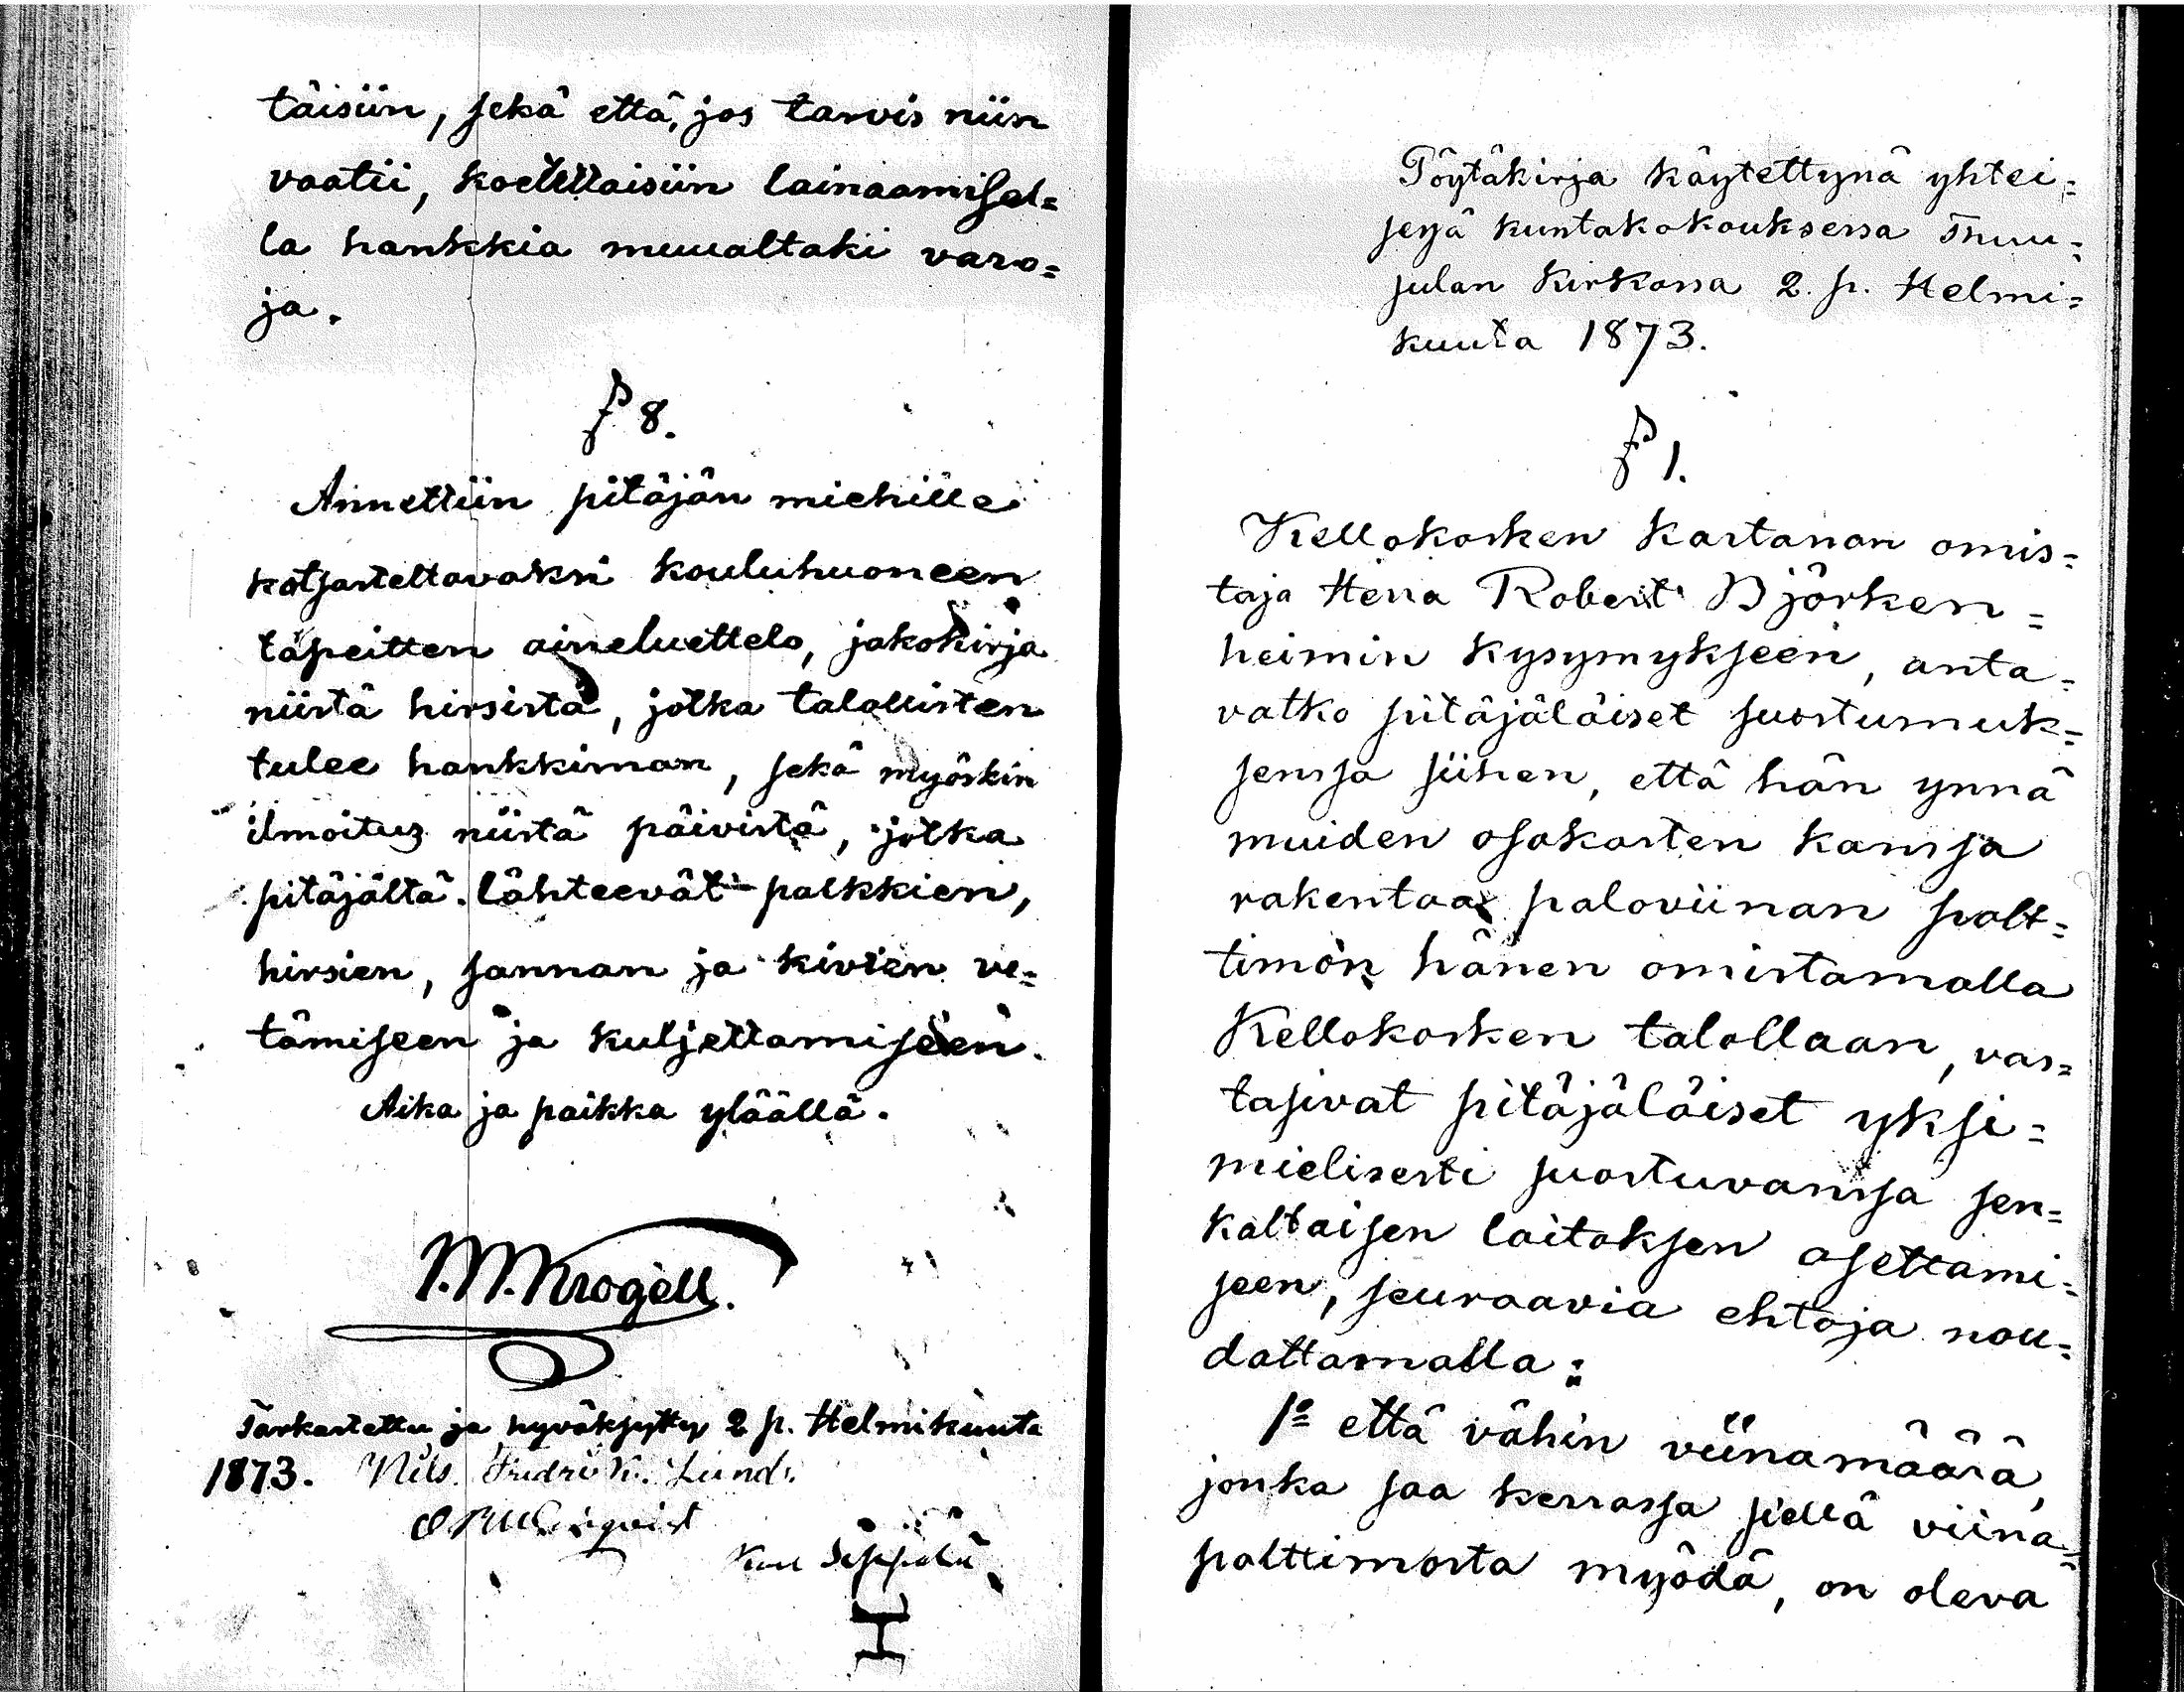 täisiin, sekä että, jos tarvis niin
vaatii, koetettaisiin lainaamisel=
la hankkia muualtaki varo=
ja.
§ 8.
Annettiin pitäjän miehille
katsasteltavaksi kouluhuoneen
täpeitten aineluettelo, jakokirja
niistä hirsistä, jotka talollisten
tulee hankkiman, sekä myöskin
ilmoitus niistä päivistä, jotka
pitäjältä lähteevät palkkien,
hirsien, sannan ja kivien ve=
tämiseen ja kuljettamiseen.
Aika ja paikka ylläällä.
Krogell.
Tarkastettu ja hyväksytty 2 p. Helmikuuta
1873. Nils Fredrik Lund.
Seppälä
Pöytäkirja käytettynä yhtei=
sessä kuntakokouksessa Thuu=
sulan Kirkossa 2. p. Helmi=
kuuta 1873.
§ 1.
Kellokosken Kartanon omis=
taja Herra Robert Björken=
heimin kysymykseen, anta=
vatko pitäjäläiset suostumuk=
sensa siihen, että hän ynnä
muiden osakasten kanssa
rakentaa paloviinan polt=
timon hänen omistamalla
Kellokosken talollaan, vas=
tasivat pitäjäläiset yksi=
mielisesti suostuvansa sen=
kaltaisen laitoksen asettami=
seen, seuraavia ehtoja nou=
dattamalla:
1º että vähin viinamäärä,
jonka saa kerrassa siellä viina=
polttimosta myödä, on oleva